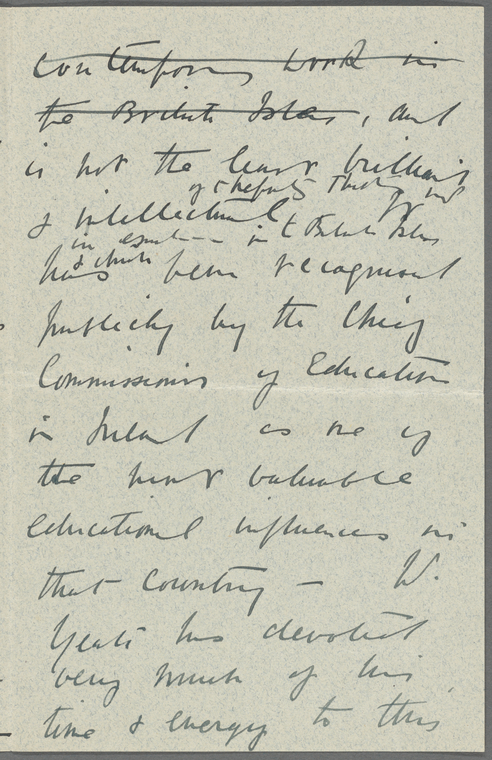 contemporary work in
the British Isles, and
is not the least brilliant
of the fifty Theatres
& intellectual
in existence in t British Isles
& which
has been recognised
publicly by the Chief
Commissioners of Education
in Ireland as one of
the most valuable
educational influences in
that country – W.
Yeats has devoted
very much of his
time & energy to this